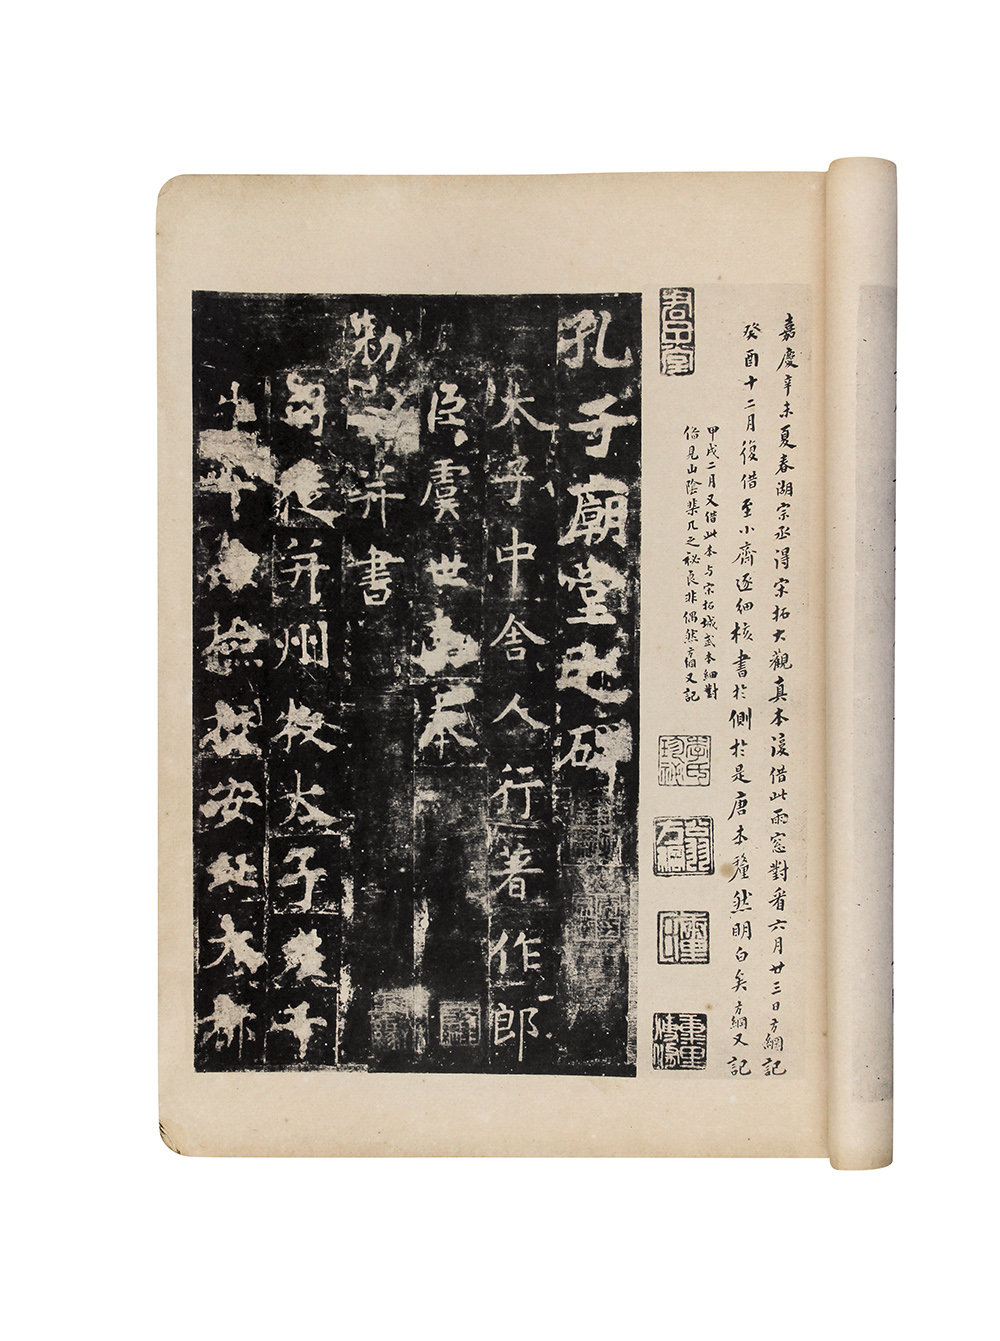 嘉慶辛未夏春湖宗丞得宋拓大觀真本復借此雨窓對看六月廿三日方綱記
癸酉十二月復借至小齋逐細核書於側於是唐本釐然明白矣方綱又記
甲戌二月又借此本与宋拓城武本細對
偹見山陰棐几之祕良非偶然方綱又記
李氏珍祕
孔子廟堂之碑
太子中舍人行著作郎
臣虞世南奉
勑 并書
司徒并州牧太子左千
牛率 檢校安北大都